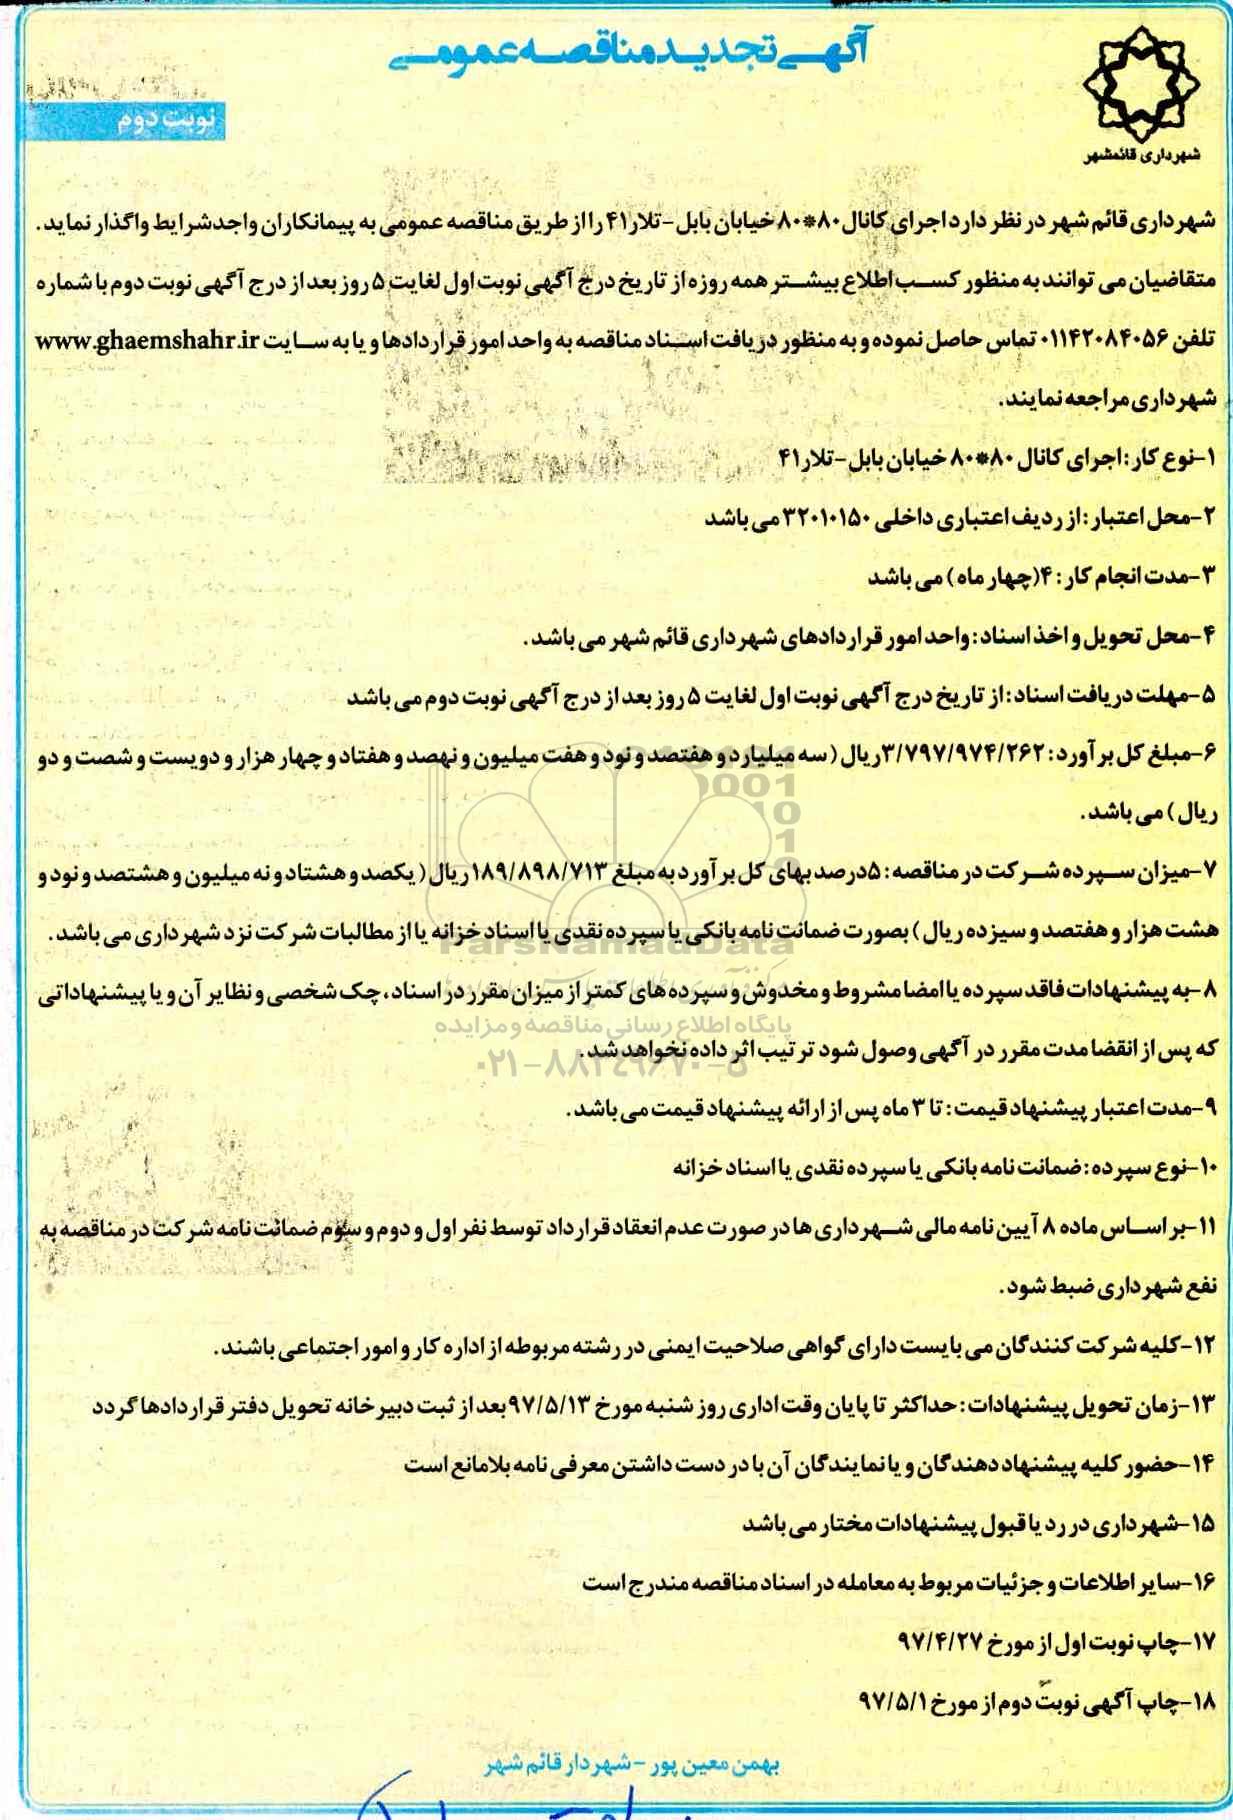 آگهی تجدید مناقصه عمومی
شهرداری قائمشهر
نوبت دوم
شهرداری قائم شهر در نظر دارد اجرای کانال ۸۰*۸۰ خیابان بابل-تلار۴۱ را از طریق مناقصه عمومی به پیمانکاران واجد شرایط واگذار نماید.
متقاضیان می توانند به منظور کسب اطلاع بیشتر همه روزه از تاریخ درج آگهی نوبت اول لغایت ۵ روز بعد از درج آگهی نوبت دوم با شماره
تلفن ۰۱۱۴۲۰۸۴۰۵۶ تماس حاصل نموده و به منظور دریافت اسناد مناقصه به واحد امور قراردادها و یا به سایت www.ghaemshahr.ir
شهرداری مراجعه نمایند.
۱-نوع کار: اجرای کانال ۸۰*۸۰ خیابان بابل-تلار۴۱
۲-محل اعتبار: از ردیف اعتباری داخلی ۳۲۰۱۰۱۵۰ می باشد
۳-مدت انجام کار: ۴(چهار ماه) می باشد
۴-محل تحویل و اخذ اسناد: واحد امور قراردادهای شهرداری قائم شهر می باشد.
۵-مهلت دریافت اسناد: از تاریخ درج آگهی نوبت اول لغایت ۵ روز بعد از درج آگهی نوبت دوم می باشد
۶-مبلغ کل برآورد: ۳/۷۹۷/۹۷۴/۲۶۲ریال (سه میلیارد و هفتصد و نود و هفت میلیون و نهصد و هفتاد و چهار هزار و دویست و شصت و دو
ریال) می باشد.
۷-میزان سپرده شرکت در مناقصه: ۵درصد بهای کل برآورد به مبلغ ۱۸۹/۸۹۸/۷۱۳ریال (یکصد و هشتاد و نه میلیون و هشتصد و نود و
هشت هزار و هفتصد و سیزده ریال) بصورت ضمانت نامه بانکی یا سپرده نقدی یا اسناد خزانه یا از مطالبات شرکت نزد شهرداری می باشد.
ParsNamadData
۸-به پیشنهادات فاقد سپرده یا امضا مشروط و مخدوش و سپرده های کمتر از میزان مقرر در اسناد، چک شخصی و نظایر آن و یا پیشنهاداتی
پایگاه اطلاع رسانی مناقصه و مزایده
که پس از انقضا مدت مقرر در آگهی وصول شود ترتیب اثر داده نخواهد شد.
۰۲۱-۸۸۳۴۹۶۷۰-۵
۹-مدت اعتبار پیشنهاد قیمت: تا ۳ ماه پس از ارائه پیشنهاد قیمت می باشد.
۱۰-نوع سپرده: ضمانت نامه بانکی یا سپرده نقدی یا اسناد خزانه
۱۱-بر اساس ماده ۸ آیین نامه مالی شهرداری ها در صورت عدم انعقاد قرارداد توسط نفر اول و دوم و سوم ضمانت نامه شرکت در مناقصه به
نفع شهرداری ضبط شود.
۱۲-کلیه شرکت کنندگان می بایست دارای گواهی صلاحیت ایمنی در رشته مربوطه از اداره کار و امور اجتماعی باشند.
۱۳-زمان تحویل پیشنهادات: حداکثر تا پایان وقت اداری روز شنبه مورخ ۹۷/۵/۱۳ بعد از ثبت دبیرخانه تحویل دفتر قراردادها گردد
۱۴-حضور کلیه پیشنهاد دهندگان و یا نمایندگان آن با در دست داشتن معرفی نامه بلامانع است
۱۵-شهرداری در رد یا قبول پیشنهادات مختار می باشد
۱۶-سایر اطلاعات و جزئیات مربوط به معامله در اسناد مناقصه مندرج است
۱۷-چاپ نوبت اول از مورخ ۹۷/۴/۲۷
۱۸-چاپ آگهی نوبت دوم از مورخ ۹۷/۵/۱
بهمن معین پور - شهردار قائم شهر